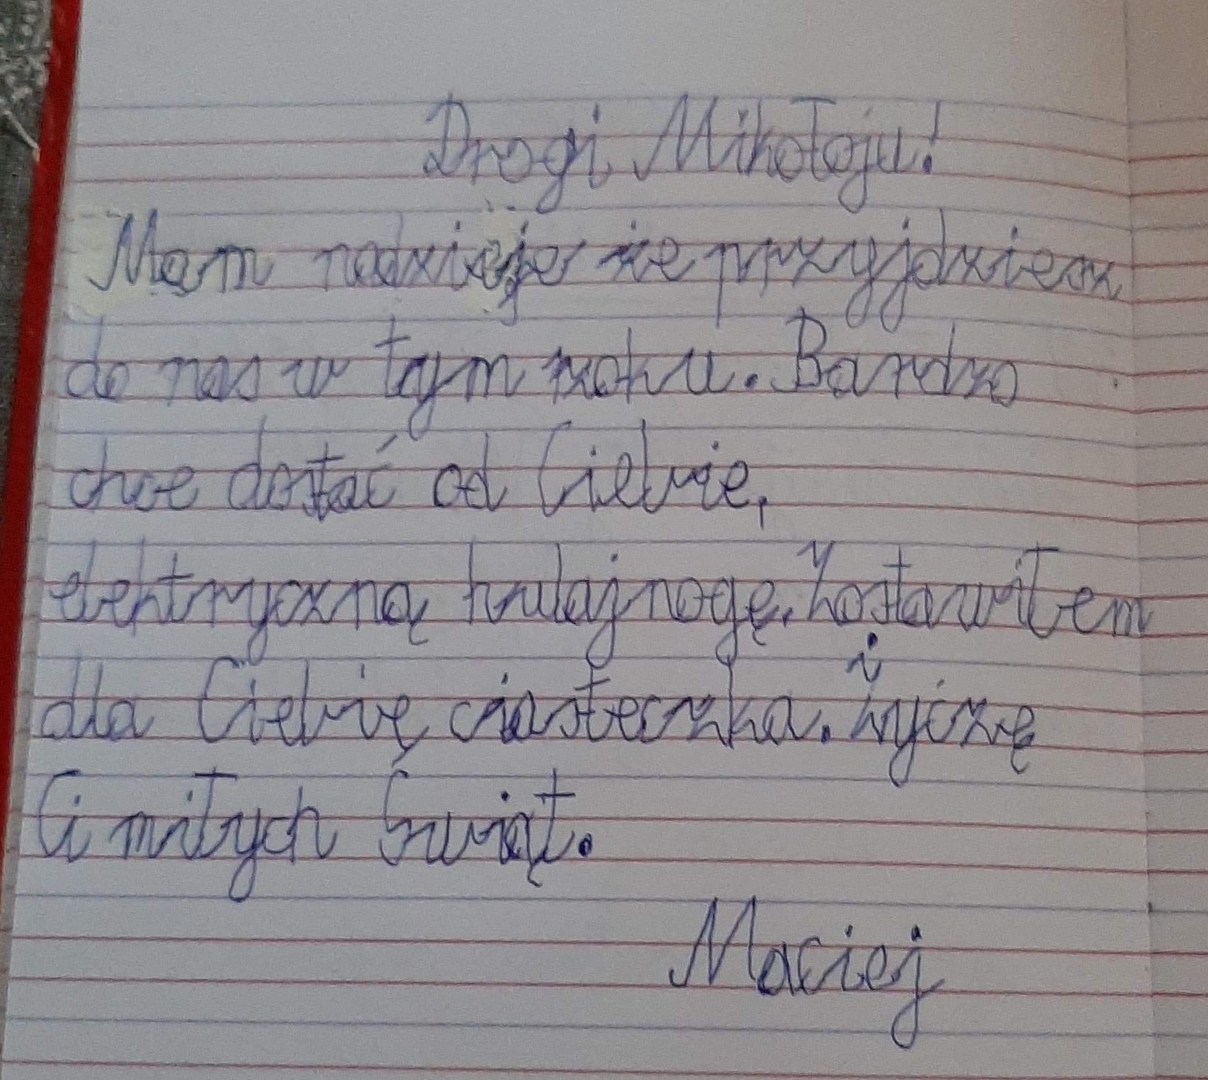 Drogi Mikołaju!
Mam nadzieję że przyjdziesz
do nas w tym roku. Bardzo
chce dostać od Ciebie,
elektryczną hulajnogę. Zostawiłem
dla Ciebię ciasteczka. i życzę
Ci miłych Świąt.
Maciej